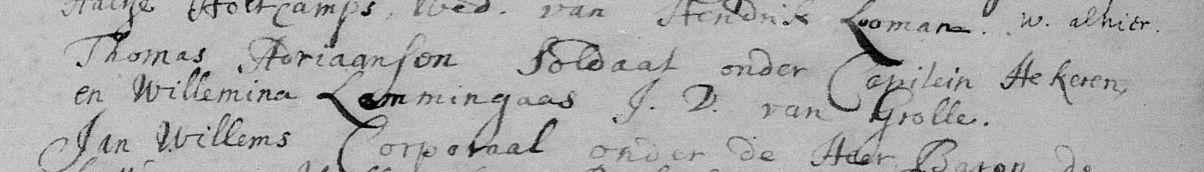 Holtcamps, Wed. van Hendrik Loman. w. alhier.
Thomas Adriaansen Soldaat onder Capitein Hekeren,
en Willemina Lammingaas J. D. van Grolle.
Jan Willems Corporaal onder de Heer Baron de